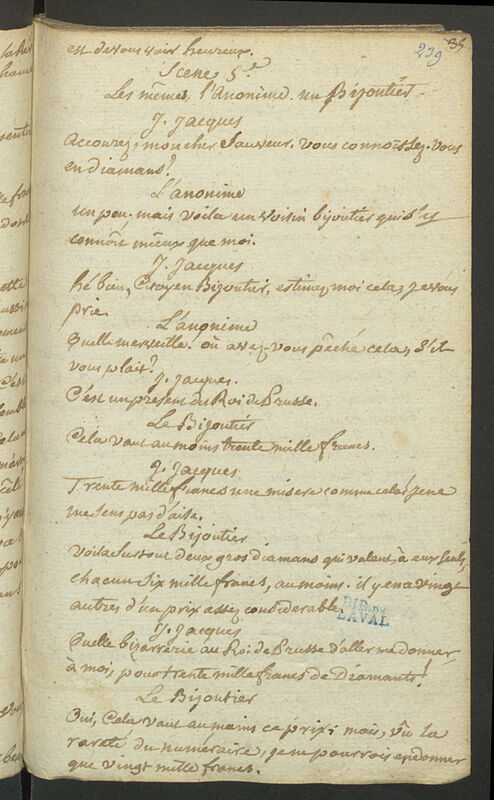 239
est de vous voir heureux.
Scene 5.e
Les mêmes, l'Anonime. un Bijoutier
J. Jacques
accourez, mon cher Sauveur. vous connoissez-vous
en diamans?
L'anonime
un peu, mais voila un voisin bijoutier qui s'y
connoit mieux que moi.
J. Jacques
hé bien, Citoyen Bijoutier, estimez moi cela, je vous
prie.
L'anonime
Quelle merveille! où avez-vous pêché cela, s'il
vous plait?
J. Jacques.
C'est un present du Roi de Prusse.
Le Bijoutier
Cela vaut au moins trente mille francs.
J. Jacques
Trente mille francs une misere comme cela! je ne
me sens pas d'aise.
Le Bijoutier
voila surtout deux gros diamans qui valent, à eux seuls,
chacun six mille francs, au moins. il y en a vingt
autres d'un prix assez considerable.
BIB. DE
LAVAL
J. Jacques
Quelle bizarrerie au Roi de Prusse d'aller me donner
à moi, pour trente mille francs de Diamants!
Le Bijoutier
Oui, Cela vaut au moins ce prix; mais, vû la
rareté du numéraire, je ne pourrois en donner
que vingt mille francs.